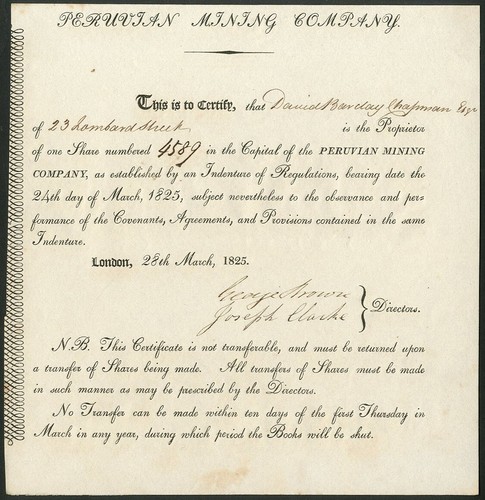 PERUVIAN MINING COMPANY.
This is to Certify, that David Barclay Chapman Esqr
of 23 Lombard Street is the Proprietor
of one Share numbered 4589 in the Capital of the PERUVIAN MINING
COMPANY, as established by an Indenture of Regulations, bearing date the
24th day of March, 1825, subject nevertheless to the observance and per-
formance of the Covenants, Agreements, and Provisions contained in the same
Indenture.
London, 28th March, 1825.
George Brown
Joseph Clarke
Directors.
N.B. This Certificate is not transferable, and must be returned upon
a transfer of Shares being made. All transfers of Shares must be made
in such manner as may be prescribed by the Directors.
No Transfer can be made within ten days of the first Thursday in
March in any year, during which period the Books will be shut.